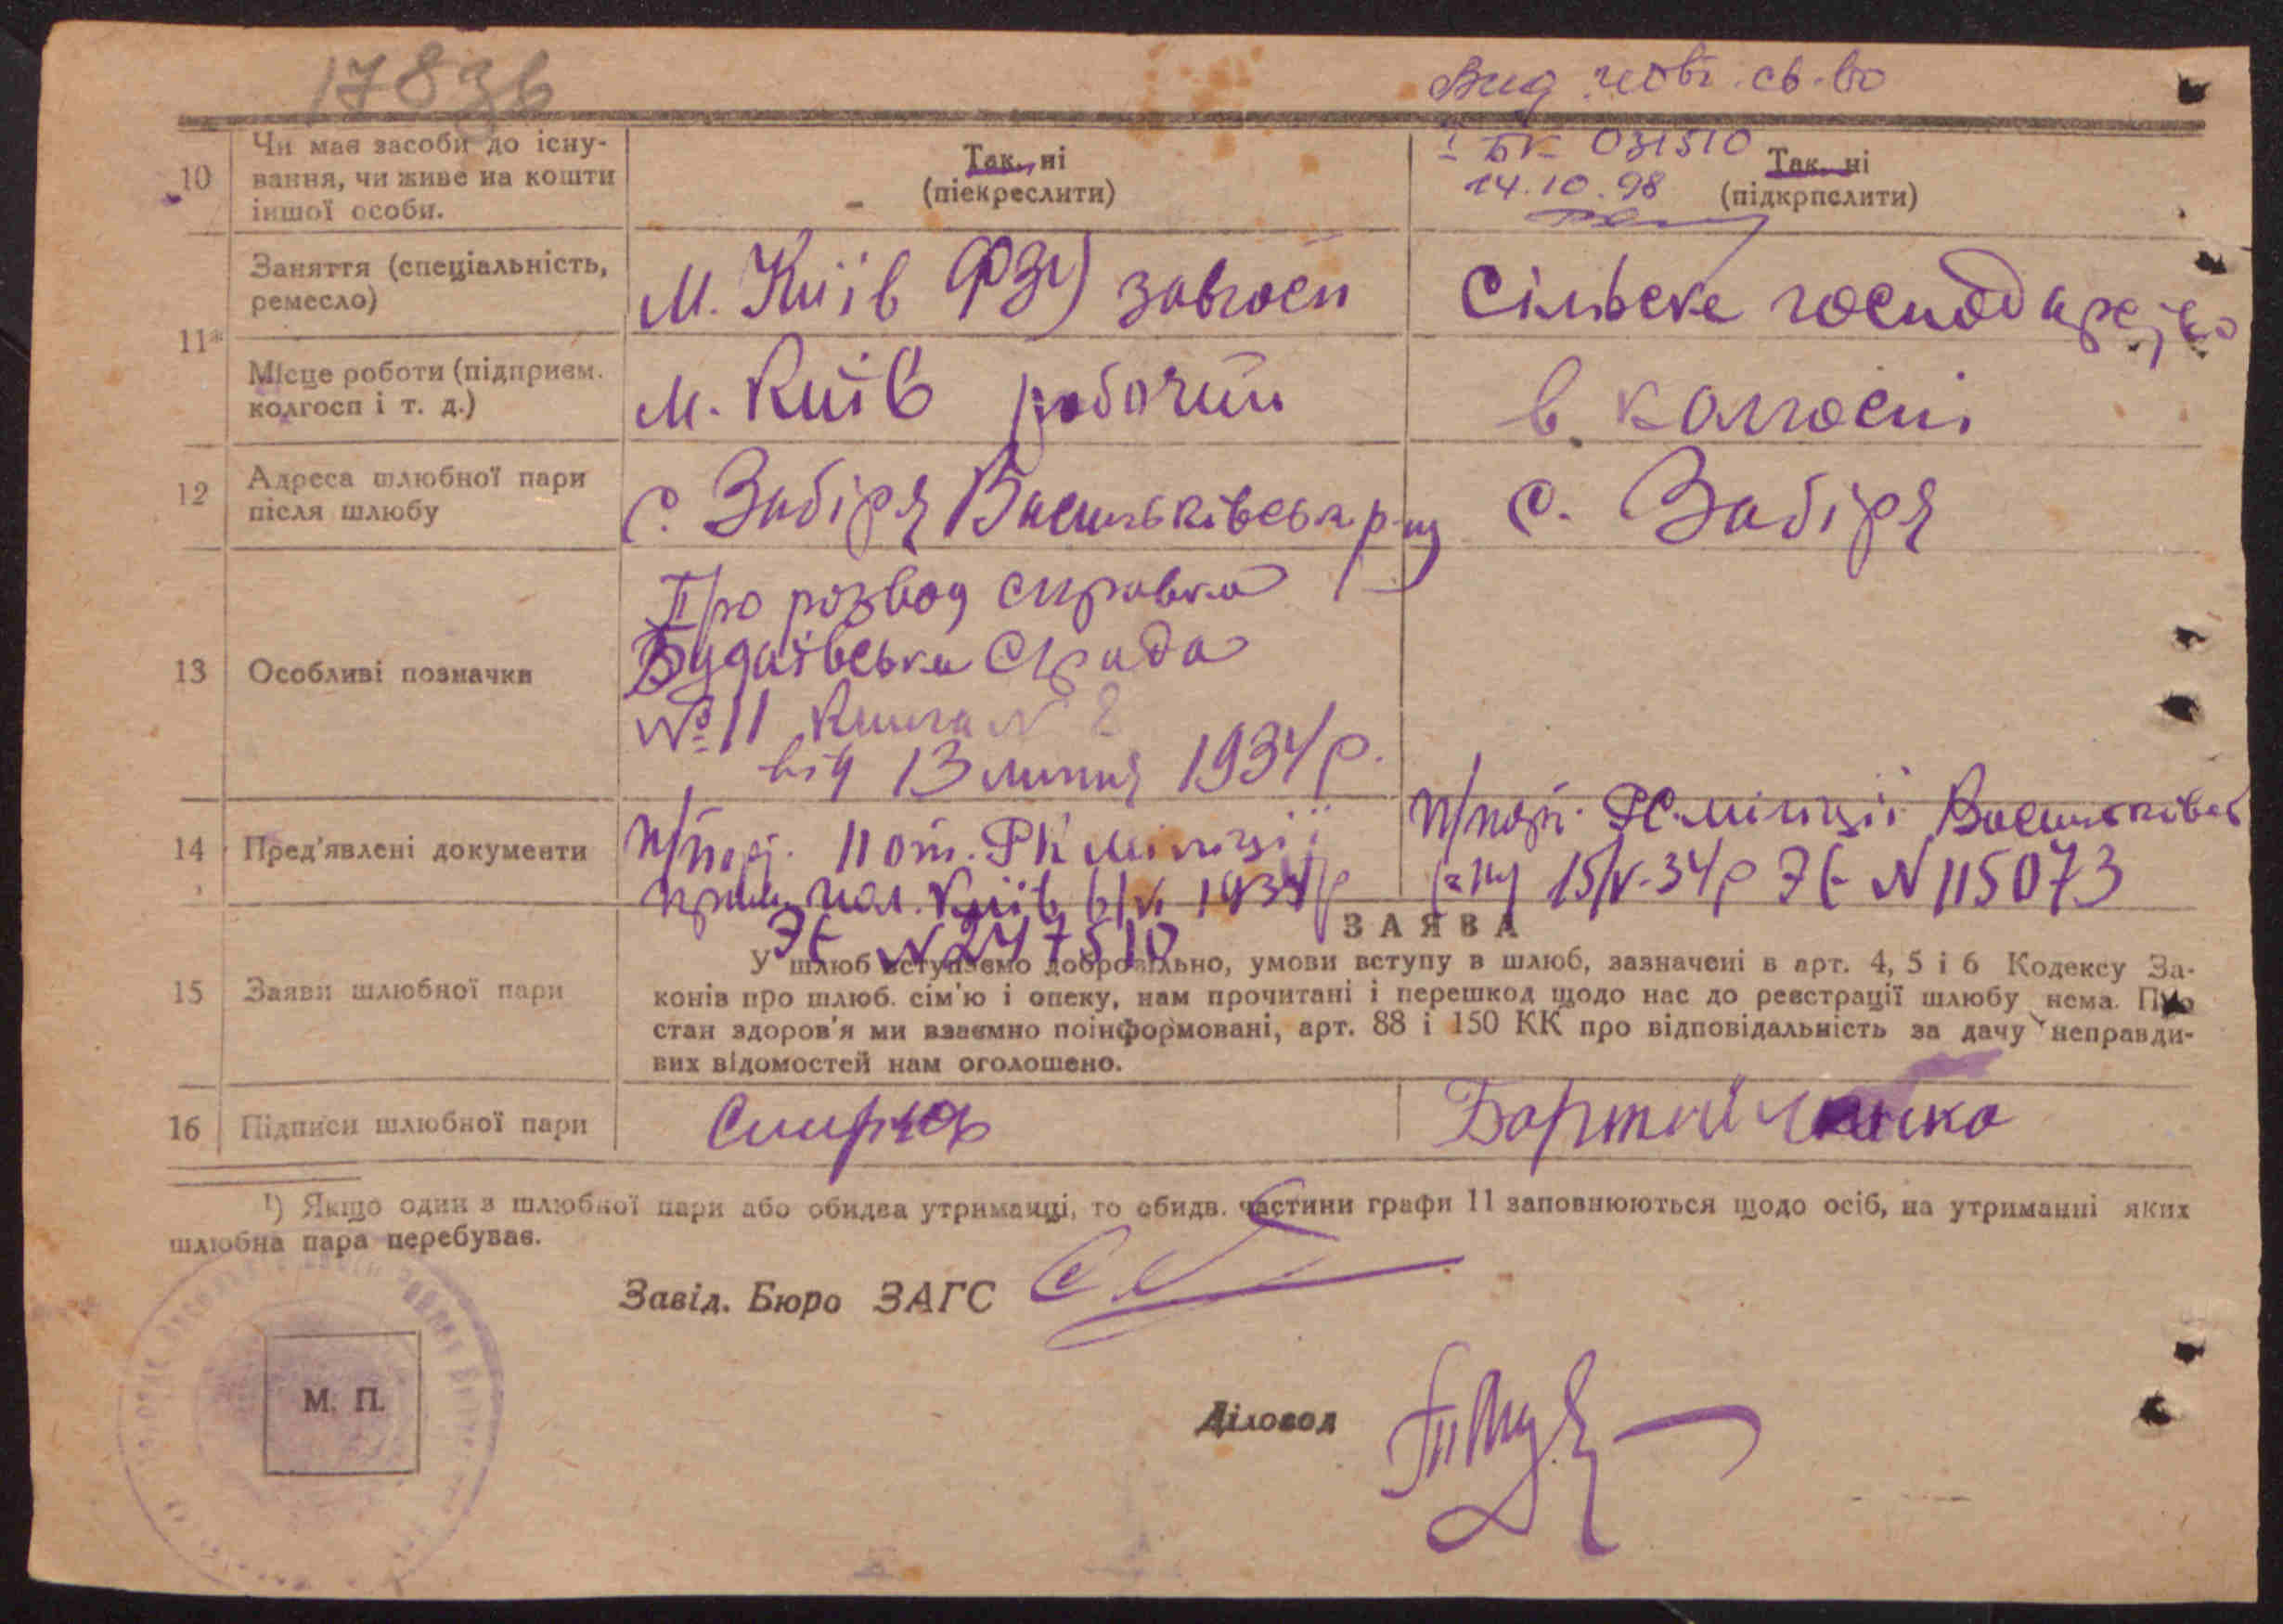 1783б
Вид. повт. св-во
І БК 031510
14.10.98
10 Чи має засоби до існу-
вання, чи живе на кошти
іншої особи.
Так, ні
(піекреслити)
Так, ні
(підкрпслити)
11* Заняття (спеціальність,
ремесло)
м. Київ ФЗУ завгосп
Сільське господарство
Місце роботи (підприєм.
колгосп і т. д.)
м. Київ робочий
в колгоспі
12 Адреса шлюбної пари
після шлюбу
с. Забіря Васильківськ. р-ну
с. Забіря
13 Особливі позначки
Про розвод справка
Будаївська С/рада
№ 11 Книга № 2
від 13 липня 1934 р.
14 Пред'явлені документи
п/порт. 11 от. РК міліції
м. Київ 1934 р
ЭЕ N 247510
п/порт. РС. міліції Васильків
15/V-34 р ЭЕ N 115073
ЗАЯВА
15 Заяви шлюбної пари
У шлюб вступаємо добровільно, умови вступу в шлюб, зазначені в арт. 4, 5 і 6 Кодексу За-
конів про шлюб. сім'ю і опеку, нам прочитані і перешкод щодо нас до реєстрації шлюбу нема. Про
стан здоров'я ми взаємно поінформовані, арт. 88 і 150 КК про відповідальність за дачу неправди-
вих відомостей нам оголошено.
16 Підписи шлюбної пари
Смирнов
¹) Якщо один з шлюбної пари або обидва утриманці, то обидв. частини графи 11 заповнюються щодо осіб, на утриманні яких
шлюбна пара перебуває.
Завід. Бюро ЗАГС
М. П.
Діловод